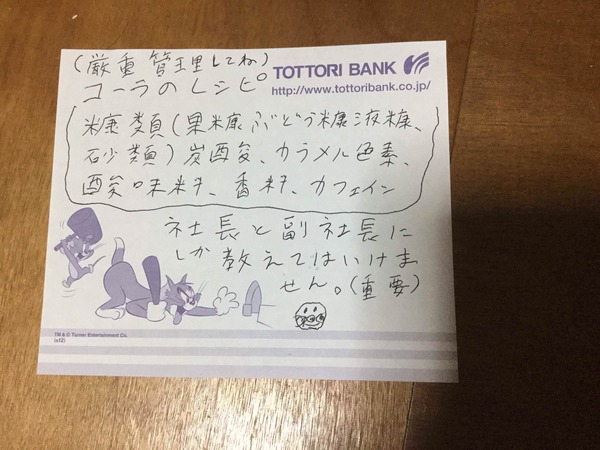 (厳重管理してね)
コーラのレシピ
TOTTORI BANK
http://www.tottoribank.co.jp/
糖類(果糖ぶどう糖液糖、
砂類)炭酸、カラメル色素、
酸味料、香料、カフェイン
社長と副社長に
しか教えてはいけま
せん。(重要)
TM & © Turner Entertainment Co.
(s12)